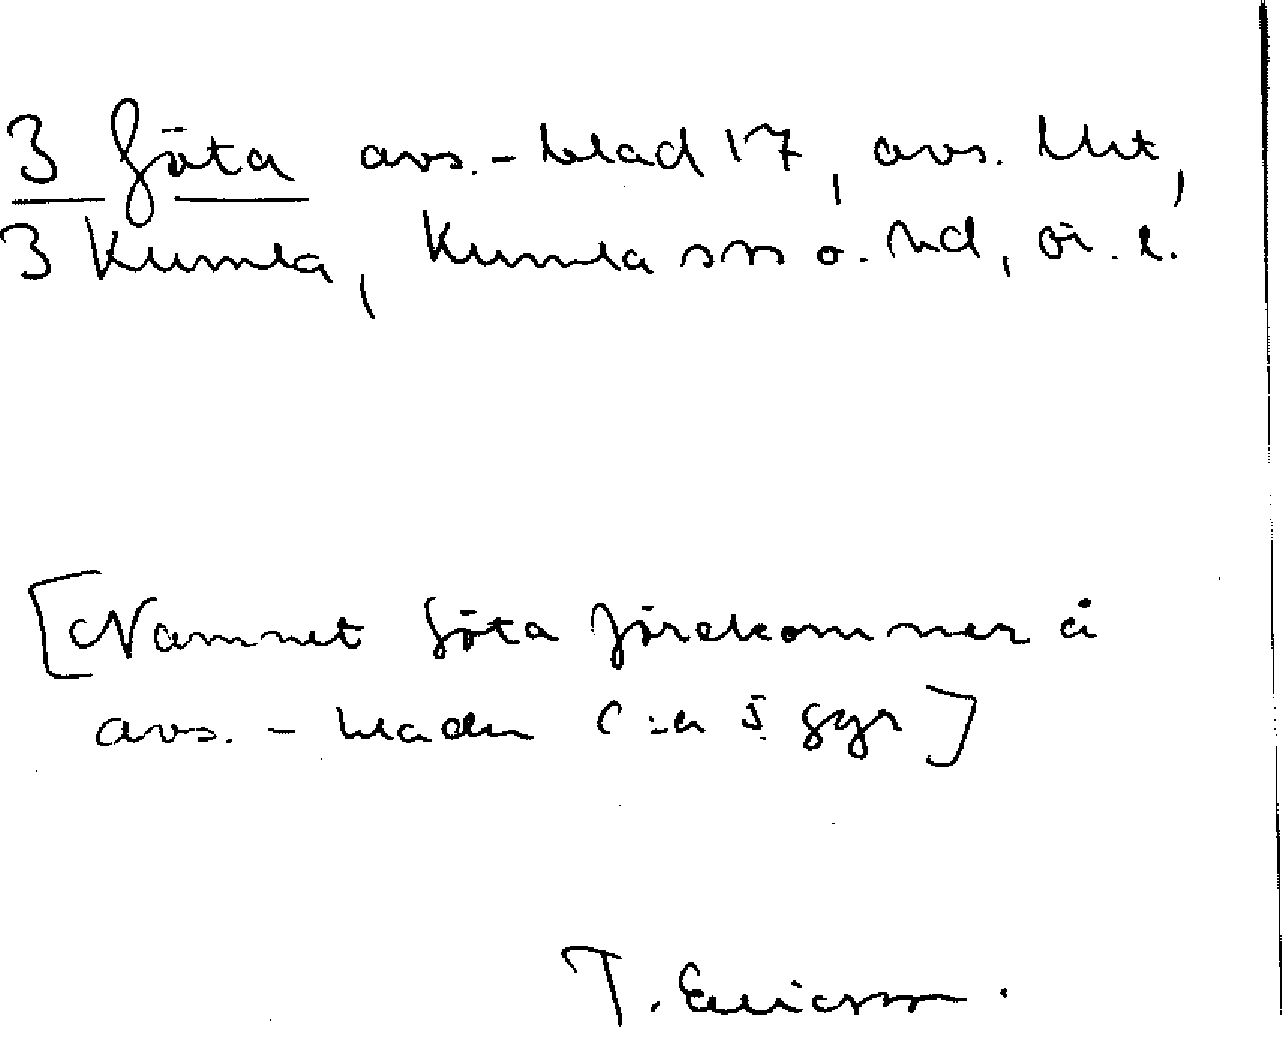 3 Göta avs.-blad 17, avs. Utt,
3 Kumla, Kumla sn o. hd, ör. l.
[Namnet Göta förekommer å
avs. - bladen c:a 5 ggr]
T. Ericsson.